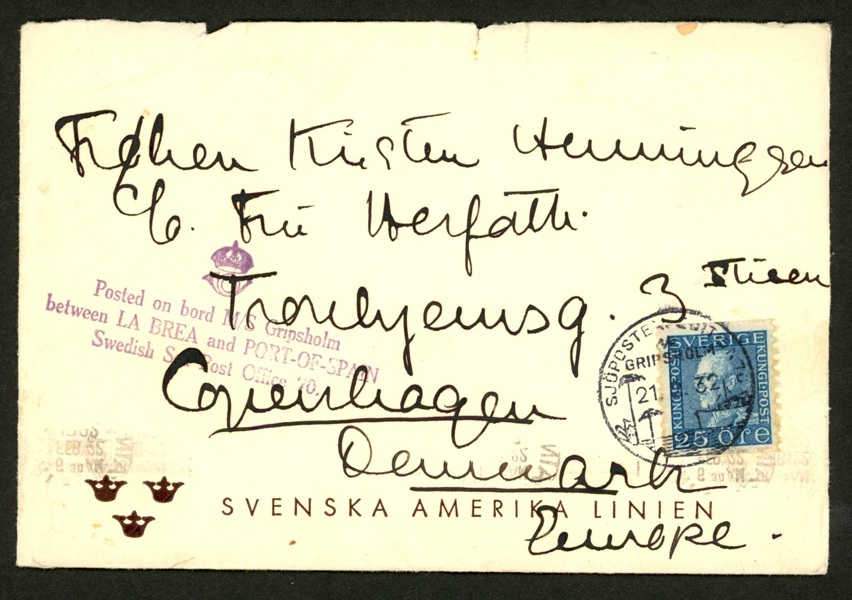 Frøken Kirsten Henningsen
c/o. Fru Herfath.
Trondhjemsg. 3
Copenhagen
Denmark
Europe.
Posted on bord M/S Gripsholm
between LA BREA and PORT-OF-SPAIN
Swedish Sea Post Office
SJÖPOSTEXP
GRIPSHOLM
21 32
SVERIGE
KUNGL·POST
KUNGL·POST
25 ÖRE
FEB 22
SVENSKA AMERIKA LINIEN